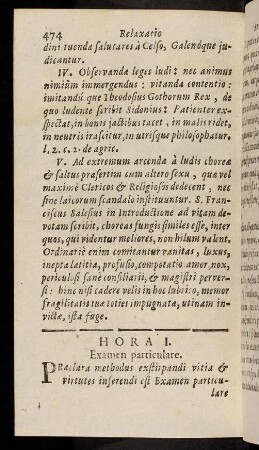 474 Relaxatio
dini tuendæ salutares à Celso, Galenóque ju-
dicantur.
IV. Observanda leges ludi: nec animus
nimiùm immergendus: vitanda contentio:
imitandú. que Theodosius Gothorum Rex, de
quo ludente scribit Sidonius: Patienter ex-
spectat, in bonis jactibus tacet, in malis ridet,
in neutris irascitur, in utrisque philosophatur.
l. 2. c. 2. de agric.
V. Ad extremum arcenda à ludis choreæ
& saltus præsertim cum altero sexu, quæ vel
maximè Clericos & Religiosos dedecent, nec
sine laicorum scandalo instituuntur. S. Fran-
ciscus Salesius in Introductione ad vitam de-
votam scribit, choreas fungi similes esse, inter
quos, qui videntur meliores, non hilum valent.
Ordinariè enim comitantur vanitas, luxus,
inepta lætitia, profusio, compotatio amor, nox,
periculosi sanè consiliarii, & magistri perver-
si: hinc nisi cadere velis in hoc lubrico, memor
fragilitatis tuæ toties impugnatæ, utinam in-
victæ, ista fuge.
HORA I.
Examen particulare.
PRæclara methodus exstirpandi vitia &
virtutes inserendi est Examen particu-
lare